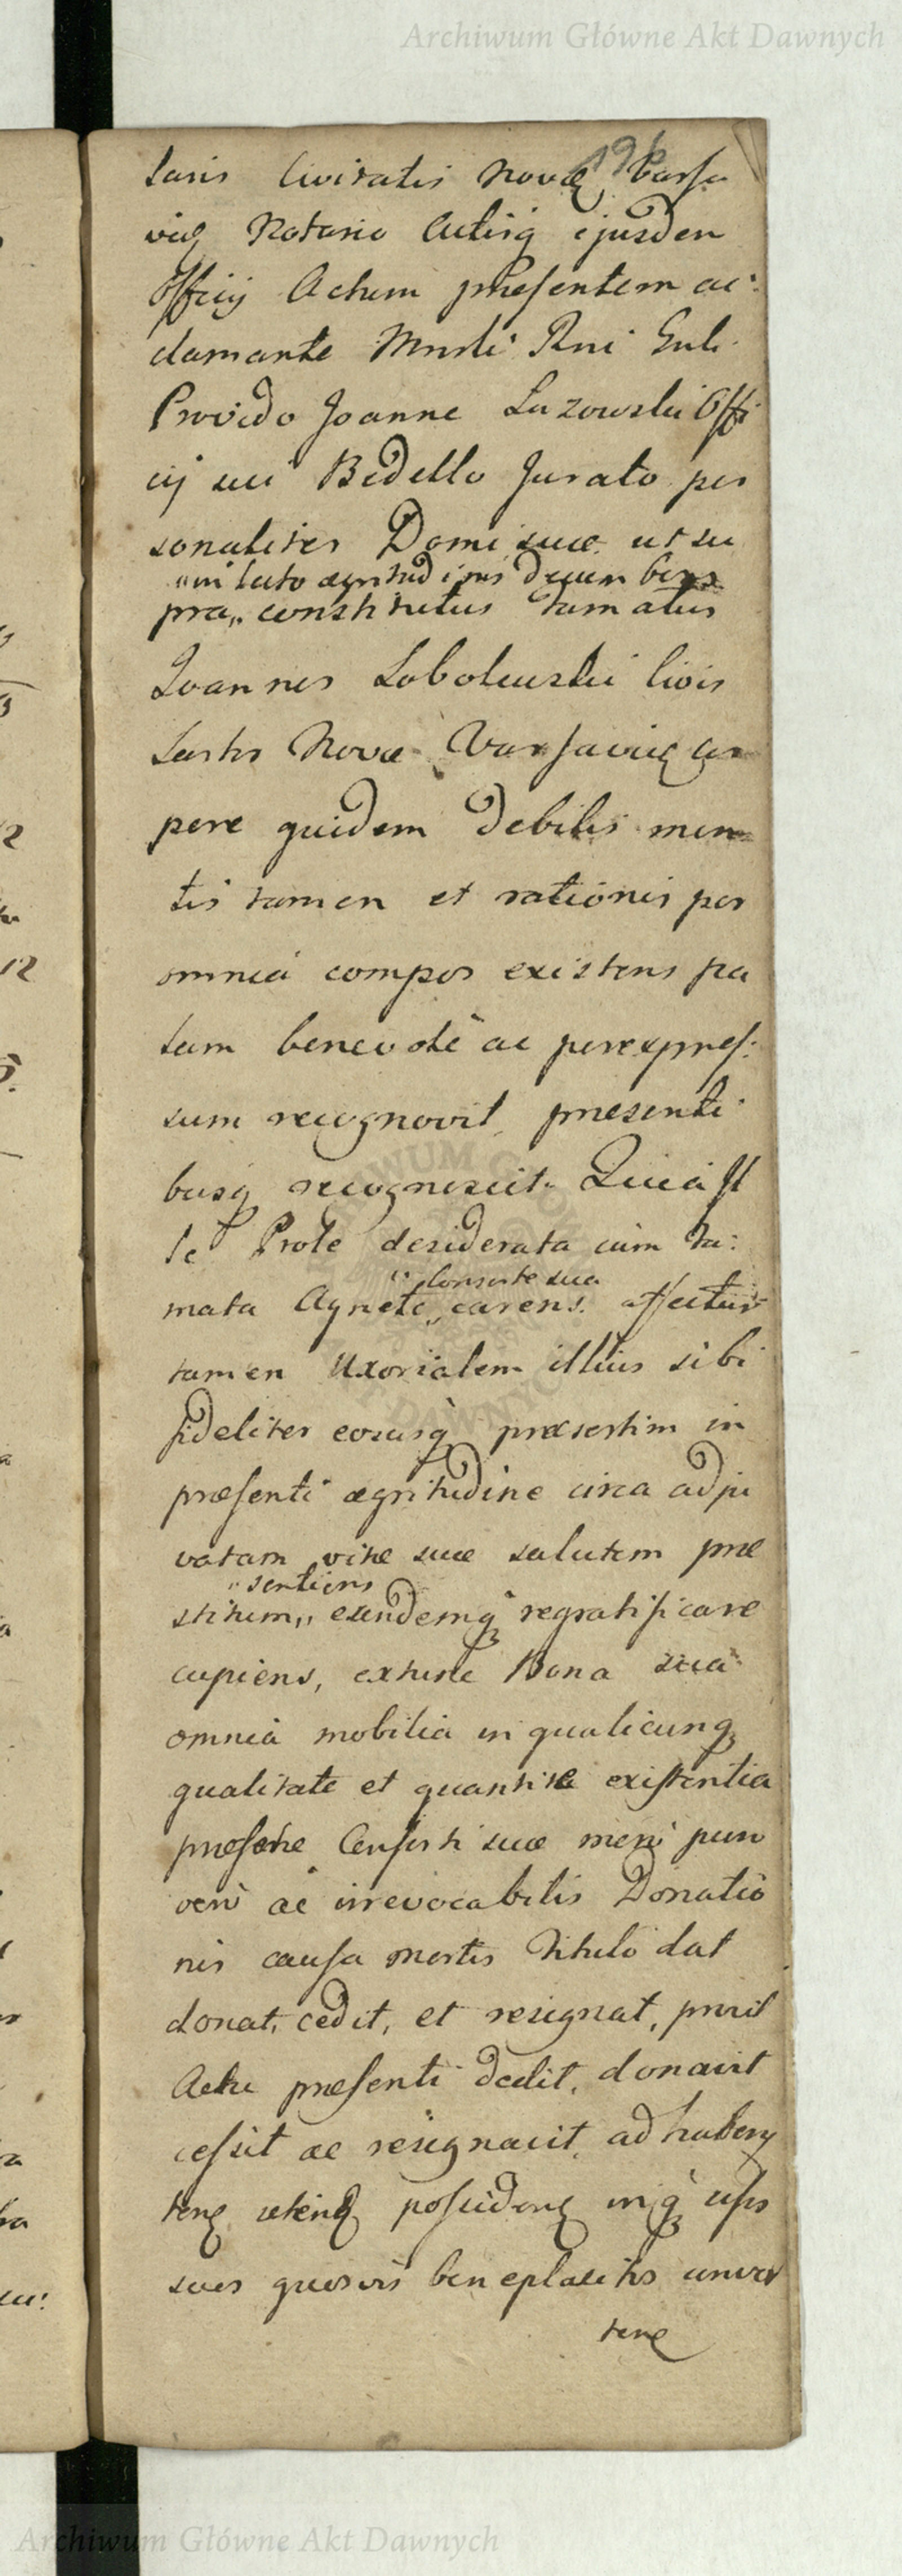 Archiwum Główne Akt Dawnych
laris Civitatis Novę Varsa
vię Notario Cuticiq ejusdem
Officij Actum præsentem ac:
clamante Mndti Rni
Provido Joanne Lazowski Offi
cij sui Bedello Jurato per
sonaliter Domi suæ ut su
"in lecto ægritudinis decumbens
pra,, constitutus Famatus
Joannes Sobolewski Civis
Sartor Novæ Varsavię cor
pore quidem debilis men
tis tamen et rationis per
omnia compos existens pa
lam benevole ac per expres:
sum recognovit, præsenti
busq recognoscit. Quia Il
le Prole desiderata cum Fa:
mata Agnete,, carens. affectum
"Consorte sua
tamen Uxorialem illius sibi
fideliter eousq præsertim in
præsenti ægritudine circa adju
vatam vitæ suæ salutem præ
"sentiens
stitum,, eundemq regratificare
cupiens, extunc Bona sua
omnia mobilia in qualicunq
qualitate et quantitate existentia
præfatæ Consorti suæ meri puri
veri ac irrevocabilis Donatio
nis causa mortis Titulo dat
donat, cedit, et resignat, prout
Actu præsenti dedit, donavit
cessit ac resignavit, ad habenę
tenę utenę possidenę inq usus
suos quosvis beneplacitos conver
tenę
Archiwum Główne Akt Dawnych